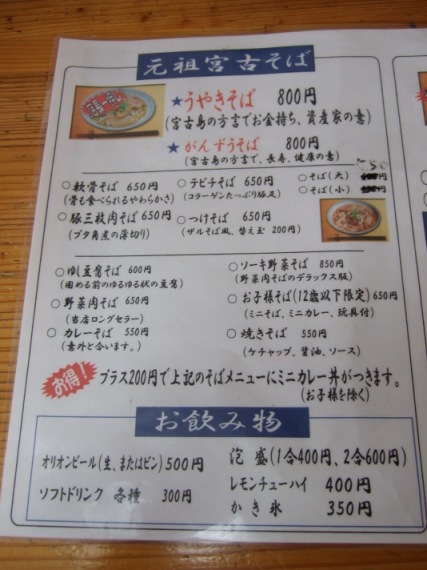 元祖宮古そば
★うやきそば 800円
(宮古島の方言でお金持ち、資産家の意)
★がんずうそば 800円
(宮古島の方言で、長寿、健康の意)
○軟骨そば 650円
(骨も食べられるやわらかさ)
○テビチそば 650円
(コラーゲンたっぷり豚足)
○そば(大)
○そば(小)
○豚三枚肉そば 650円
(ブタ角煮の薄切り)
○つけそば 650円
(ザルそば風、替え玉 200円)
○ゆし豆腐そば 600円
(固める前のゆるゆる状の豆腐)
○ソーキ野菜そば 850円
(野菜肉そばのデラックス版)
○野菜肉そば 650円
(当店ロングセラー)
○お子様そば(12歳以下限定)650円
(ミニそば、ミニカレー、玩具付)
○カレーそば 550円
(意外と合います。)
○焼きそば 550円
(ケチャップ、醤油、ソース)
お得! プラス200円で上記のそばメニューにミニカレー丼がつきます。
(お子様を除く)
お飲み物
オリオンビール(生、またはビン)500円
泡盛(1合400円、2合600円)
レモンチューハイ 400円
ソフトドリンク 各種 300円
かき氷 350円